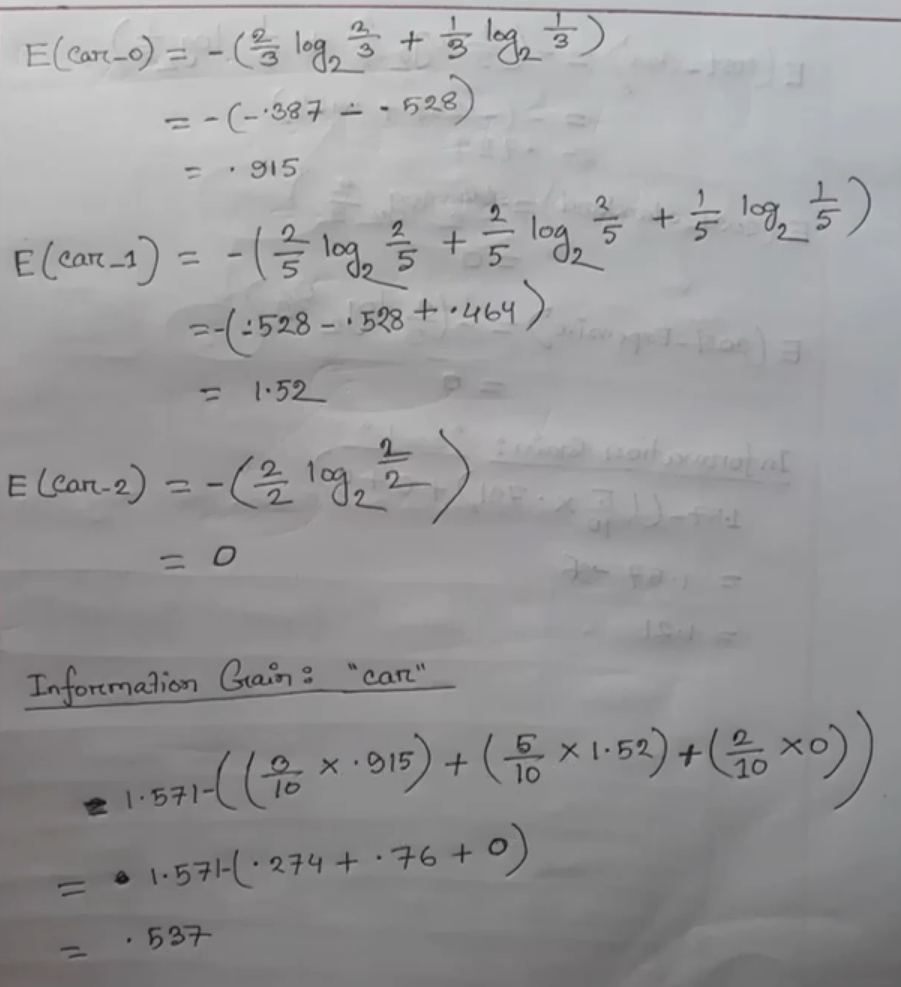 E(car-0) = -(2/3 log₂ 2/3 + 1/3 log₂ 1/3)
= -(-.387 - .528)
= .915
E(car-1) = -(2/5 log₂ 2/5 + 2/5 log₂ 2/5 + 1/5 log₂ 1/5)
= -(-.528 - .528 + .464)
= 1.52
E(car-2) = -(2/2 log₂ 2/2)
= 0
Information Gain: "car"
1.571-((3/10 × .915) + (5/10 × 1.52) + (2/10 × 0))
= 1.571-(.274 + .76 + 0)
= .537